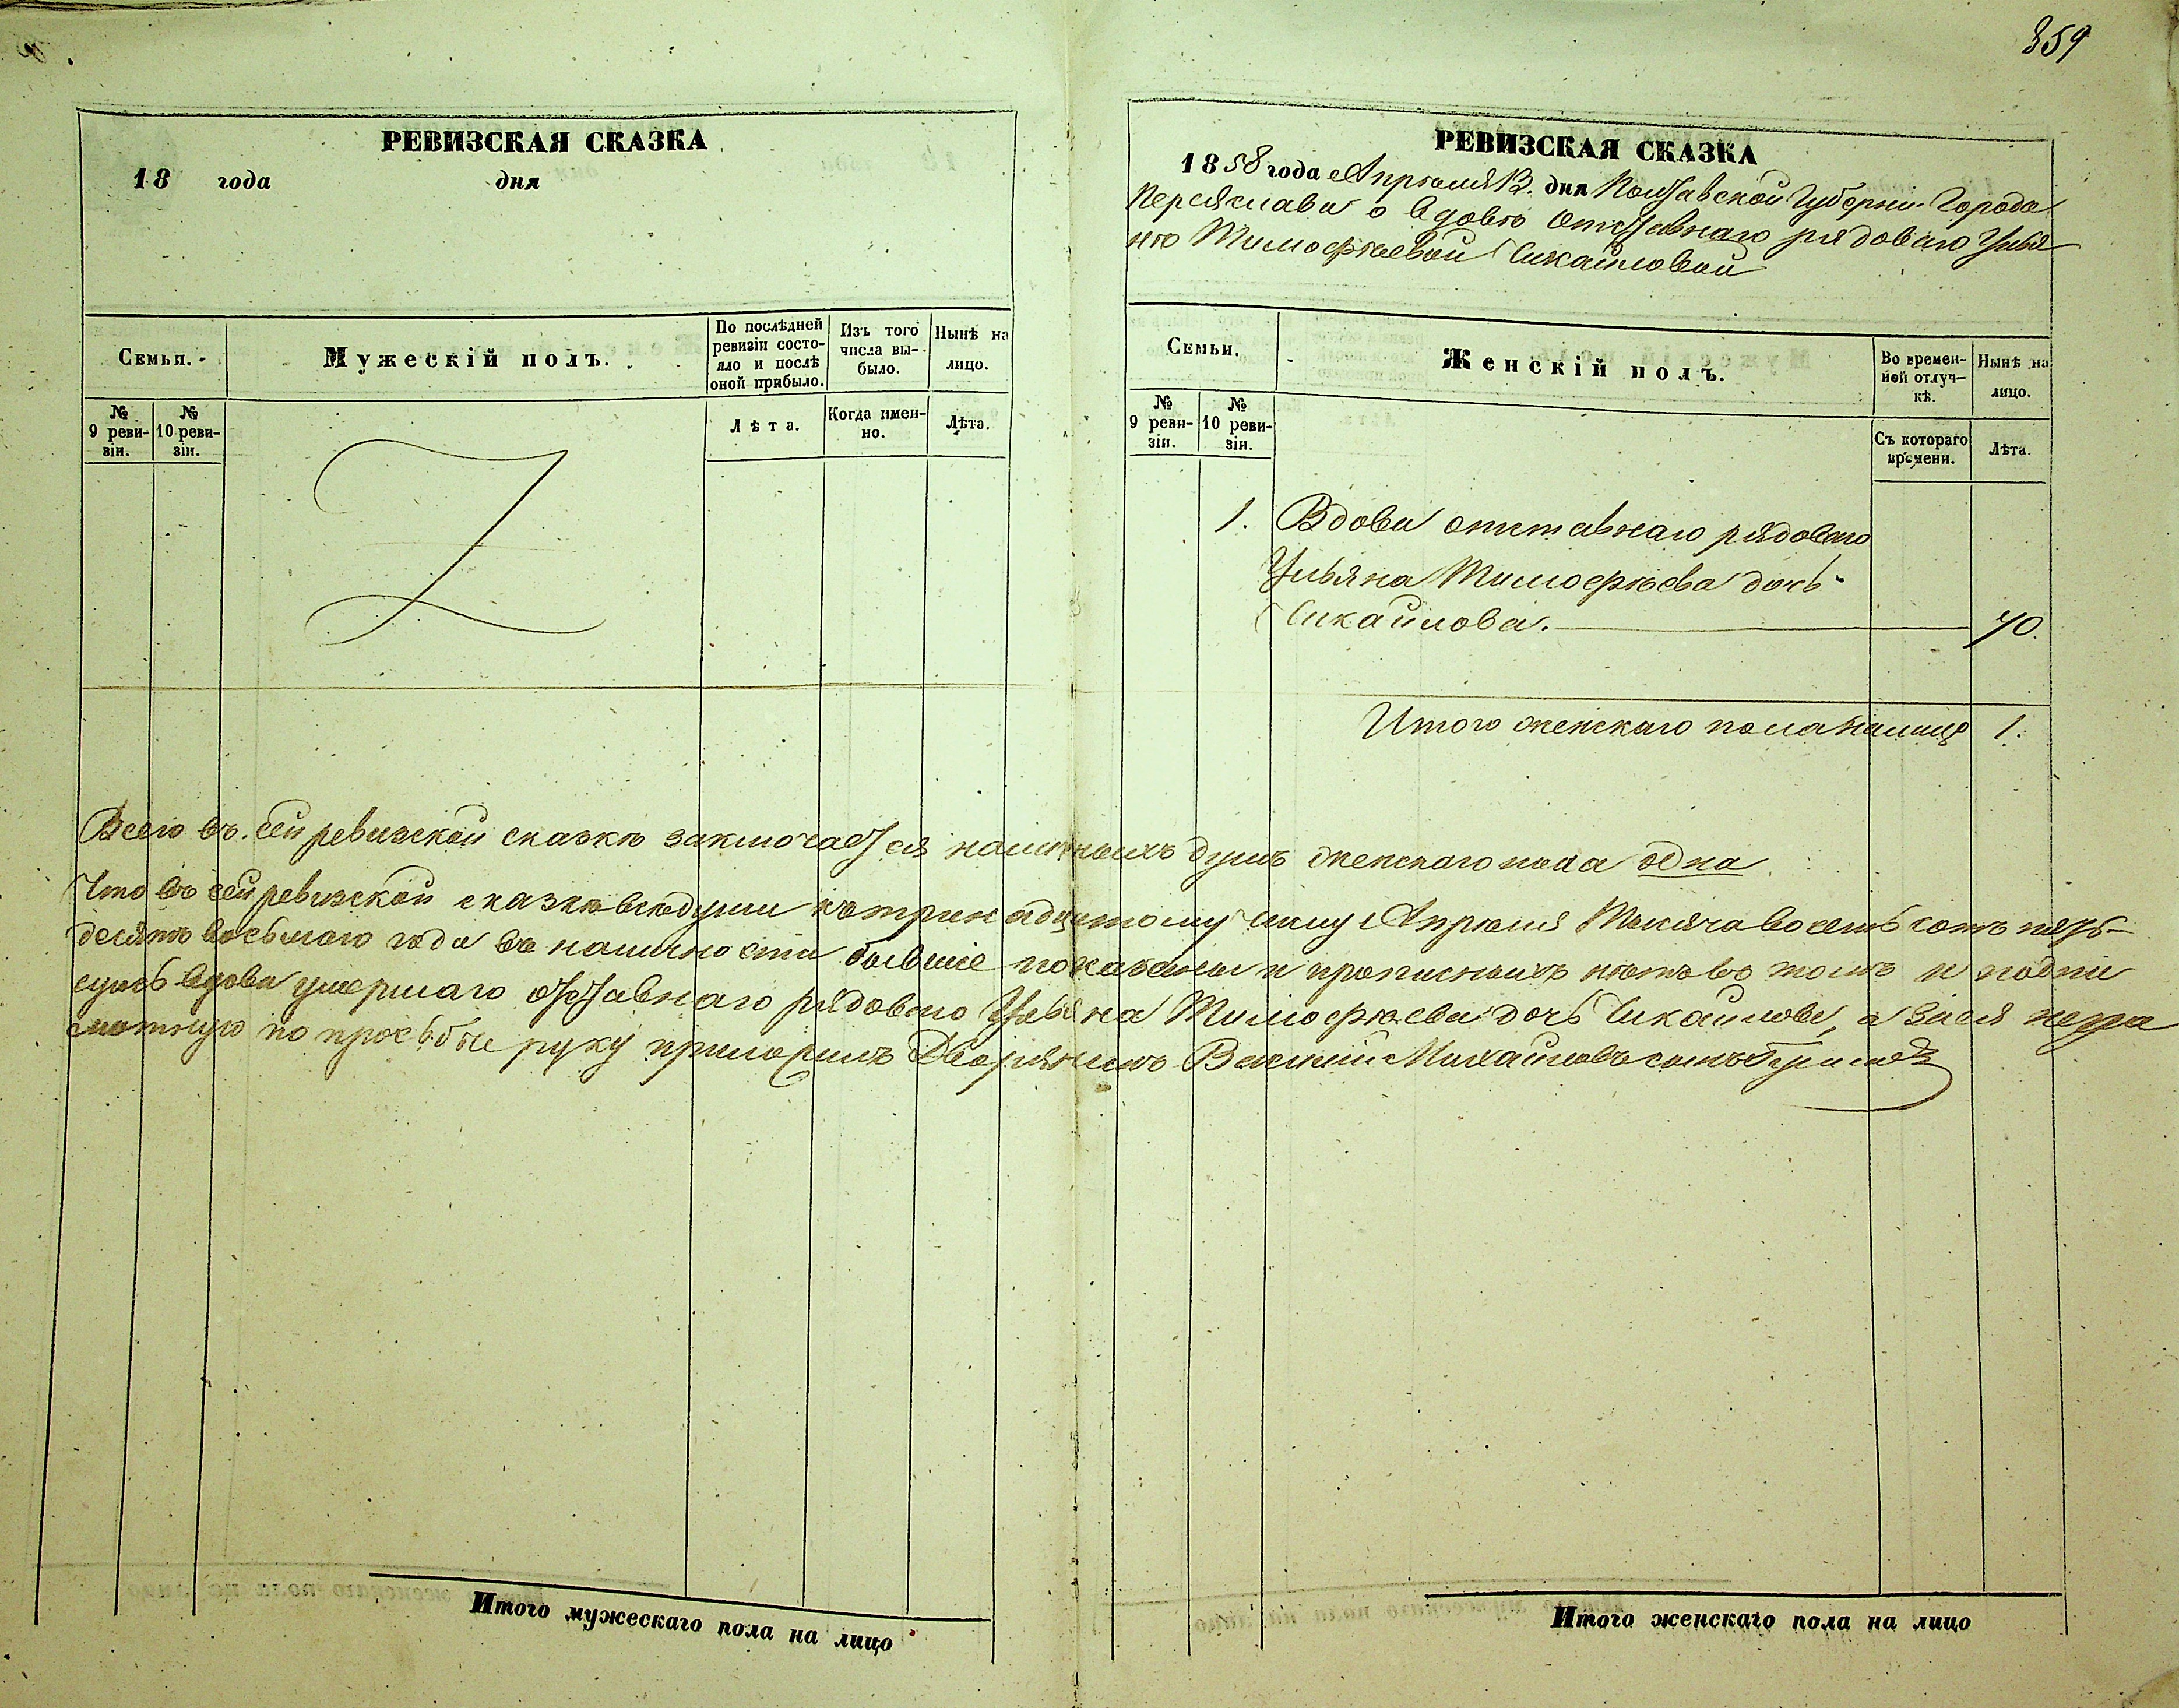 359
РЕВИЗСКАЯ СКАЗКА
18 года дня
Семьи.
Мужескій полъ.
По послѣдней ревизіи состояло и послѣ оной прибыло.
Изъ того числа выбыло.
Нынѣ на лицо.
№ 9 ревизіи.
№ 10 ревизіи.
Лѣта.
Когда именно.
Лѣта.
РЕВИЗСКАЯ СКАЗКА
1858 года Апрѣля 13. дня Полтавской Губерніи Города
Переяслава о вдовѣ отставнаго рядоваго Улья
нѣ Тимофѣевой Чикайловой
Семьи.
Женскій полъ.
Во временной отлучкѣ.
Нынѣ на лицо.
№ 9 ревизіи.
№ 10 ревизіи.
Съ котораго времени.
Лѣта.
1. Вдова отставнаго рядоваго
Ульяна Тимофѣева дочь
Чикайлова. 70.
Итого женскаго пола налицо 1.
Всего въ сей ревизской сказкѣ заключается наличныхъ душъ женскаго пола одна.
Что въ сей ревизской сказкѣ всѣ души къ тринадцатому числу Апрѣля Тысяча восемь сотъ пять-
десятъ восьмаго года въ наличности бывшіе показаны и прописныхъ нѣтъ въ томъ и подпи
суюсь вдова умершаго отставнаго рядоваго Ульяна Тимофѣева дочь Чикайлова, а за нея негра
мотную по просьбѣ ея руку приложилъ Дворянинъ Василій Михайловъ сынъ
Итого мужескаго пола на лицо
Итого женскаго пола на лицо